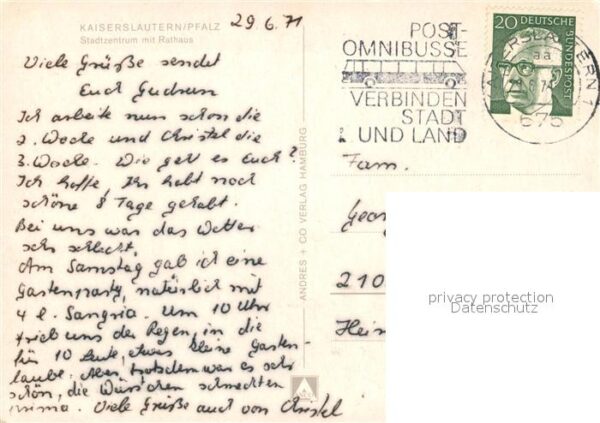 KAISERSLAUTERN/PFALZ
Stadtzentrum mit Rathaus
29.6.71
Viele Grüße sendet
Euch Gudrun
Ich arbeite nun schon die
2. Woche und Christel die
3. Woche. Wie geht es Euch?
Ich hoffe, Ihr habt noch
schöne 8 Tage gehabt.
Bei uns war das Wetter
sehr schlecht.
Am Samstag gab ich eine
Gartenparty, natürlich mit
4 l. Sangria. Um 10 Uhr
trieb uns der Regen, in die
für 10 Leute, etwas kleine Garten-
laube. Aber trotzdem war es sehr
schön, die Würstchen schmeckten
prima. Viele Grüße auch von Christel
ANDRES + CO VERLAG HAMBURG
POST-
OMNIBUSSE
VERBINDEN
STADT
UND LAND
20 DEUTSCHE
BUNDESPOST
KAISERSLAUTERN 1
aa
675
Fam.
Geor
210
Hein
privacy protection
Datenschutz